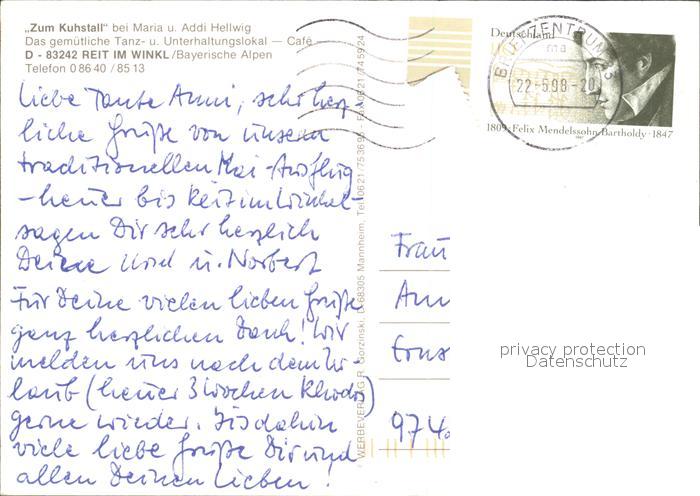 „Zum Kuhstall" bei Maria u. Addi Hellwig
Das gemütliche Tanz- u. Unterhaltungslokal — Café
D - 83242 REIT IM WINKL/Bayerische Alpen
Telefon 0 86 40 / 85 13
Liebe Tante Anni, sehr herz-
liche Grüße von unserm
traditionellen Mai-Ausflug
-heuer bis Reit im Winkel-
sagen Dir sehr herzlich
Deine Ursel u. Norbert
Für Deine vielen lieben Grüße
ganz herzlichen Dank! Wir
melden uns nach dem Ur-
laub (heuer 3 Wochen Rhodos)
gerne wieder. Bis dahin
viele liebe Grüße Dir und
allen Deinen Lieben!
WERBEVERLAG R. Gorzinski, D-68305 Mannheim, Tel. 0621/753695, Fax 0621/745924
Deutschland
BRIEFZENTRUM 83
ma
22-5.98-20
1809·Felix Mendelssohn Bartholdy·1847
Frau
Ann
Erns
974
privacy protection
Datenschutz